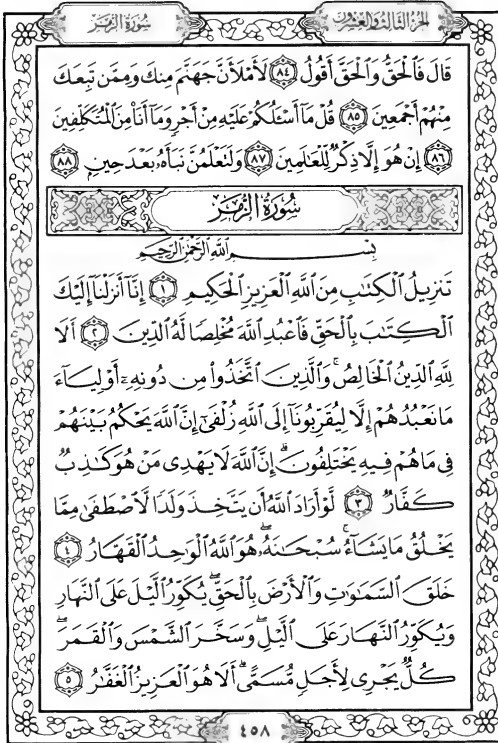 سُورَةُ الزُّمَرِ
الجُزْءُ الثَّالِثُ وَالْعِشْرُونَ
قَالَ فَٱلْحَقُّ وَٱلْحَقَّ أَقُولُ ٨٤ لَأَمْلَأَنَّ جَهَنَّمَ مِنكَ وَمِمَّن تَبِعَكَ
مِنْهُمْ أَجْمَعِينَ ٨٥ قُلْ مَآ أَسْـَٔلُكُمْ عَلَيْهِ مِنْ أَجْرٍ وَمَآ أَنَا۠ مِنَ ٱلْمُتَكَلِّفِينَ
٨٦ إِنْ هُوَ إِلَّا ذِكْرٌ لِّلْعَٰلَمِينَ ٨٧ وَلَتَعْلَمُنَّ نَبَأَهُۥ بَعْدَ حِينٍۭ ٨٨
سُورَةُ الزُّمَرِ
بِسْمِ ٱللَّهِ ٱلرَّحْمَٰنِ ٱلرَّحِيمِ
تَنزِيلُ ٱلْكِتَٰبِ مِنَ ٱللَّهِ ٱلْعَزِيزِ ٱلْحَكِيمِ ١ إِنَّآ أَنزَلْنَآ إِلَيْكَ
ٱلْكِتَٰبَ بِٱلْحَقِّ فَٱعْبُدِ ٱللَّهَ مُخْلِصًا لَّهُ ٱلدِّينَ ٢ أَلَا
لِلَّهِ ٱلدِّينُ ٱلْخَالِصُ ۚ وَٱلَّذِينَ ٱتَّخَذُوا۟ مِن دُونِهِۦٓ أَوْلِيَآءَ
مَا نَعْبُدُهُمْ إِلَّا لِيُقَرِّبُونَآ إِلَى ٱللَّهِ زُلْفَىٰٓ إِنَّ ٱللَّهَ يَحْكُمُ بَيْنَهُمْ
فِى مَا هُمْ فِيهِ يَخْتَلِفُونَ ۗ إِنَّ ٱللَّهَ لَا يَهْدِى مَنْ هُوَ كَٰذِبٌ
كَفَّارٌ ٣ لَّوْ أَرَادَ ٱللَّهُ أَن يَتَّخِذَ وَلَدًا لَّٱصْطَفَىٰ مِمَّا
يَخْلُقُ مَا يَشَآءُ ۚ سُبْحَٰنَهُۥ ۖ هُوَ ٱللَّهُ ٱلْوَٰحِدُ ٱلْقَهَّارُ ٤
خَلَقَ ٱلسَّمَٰوَٰتِ وَٱلْأَرْضَ بِٱلْحَقِّ ۖ يُكَوِّرُ ٱلَّيْلَ عَلَى ٱلنَّهَارِ
وَيُكَوِّرُ ٱلنَّهَارَ عَلَى ٱلَّيْلِ ۖ وَسَخَّرَ ٱلشَّمْسَ وَٱلْقَمَرَ ۖ
كُلٌّ يَجْرِى لِأَجَلٍ مُّسَمًّى ۗ أَلَا هُوَ ٱلْعَزِيزُ ٱلْغَفَّٰرُ ٥
٤٥٨